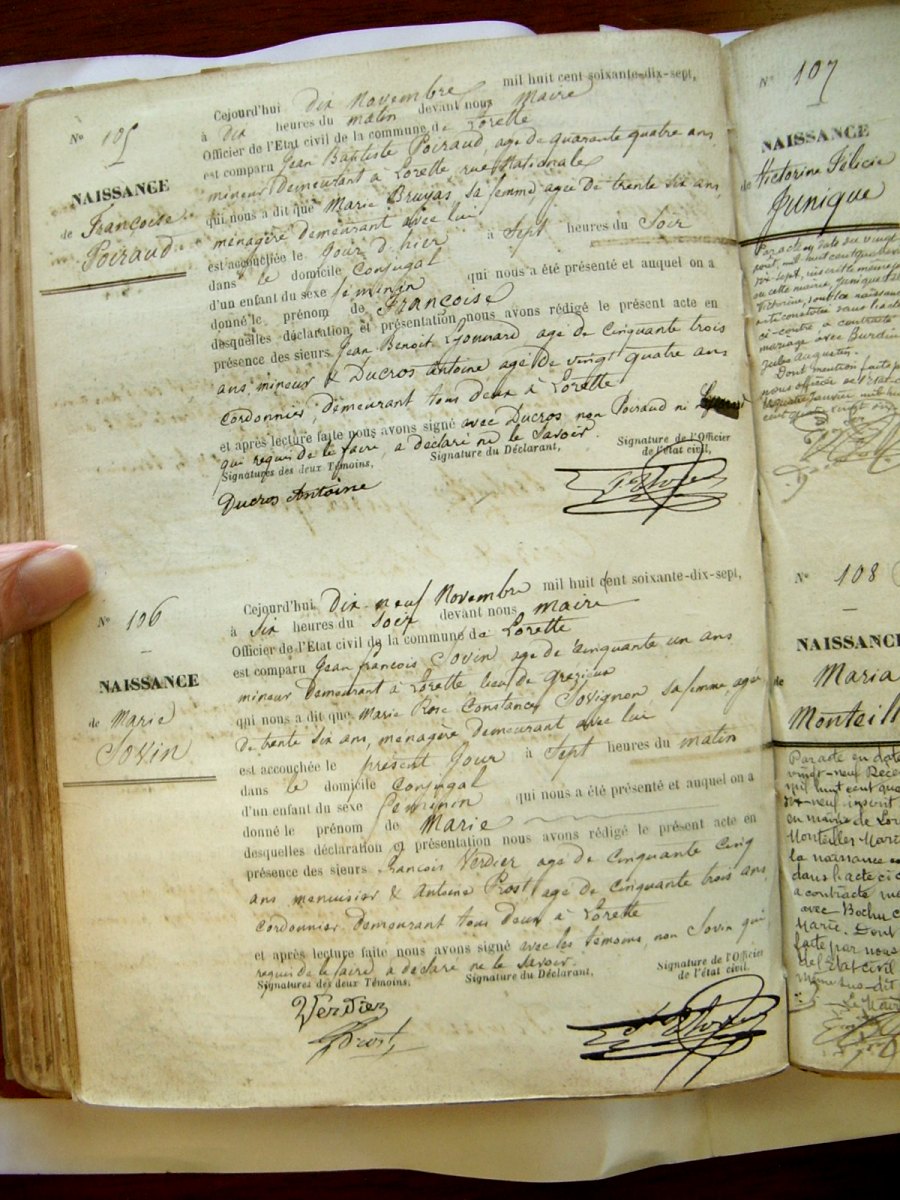 Nº 105
NAISSANCE
de Françoise
Poiraud
Cejourd'hui dix Novembre mil huit cent soixante-dix-sept,
à dix heures du matin devant nous Maire
Officier de l'Etat civil de la commune de Lorette
est comparu Jean Baptiste Poiraud, age de quarante quatre ans
mineur Demeurant à Lorette rue Nationale
qui nous a dit que Marie Bruyas sa femme, agée de trente six ans
ménagère demeurant avec lui
est accouchée le Jour d'hier à Sept heures du Soir
dans le domicile Conjugal
d'un enfant du sexe féminin qui nous a été présenté et auquel on a
donné le prénom de Françoise
desquelles déclaration et présentation nous avons rédigé le présent acte en
présence des sieurs Jean Benoit age de Cinquante trois
ans, mineur & Ducros Antoine age de vingt quatre ans
Cordonnier, demeurant tous deux à Lorette
et après lecture faite nous avons signé avec Ducros non Poiraud ni
qui requis de le faire, a déclaré ne le Savoir.
Signatures des deux Témoins, Signature du Déclarant, Signature de l'Officier
de l'état civil,
Ducros Antoine
Nº 106
NAISSANCE
de Marie
Sovin
Cejourd'hui dix neuf Novembre mil huit cent soixante-dix-sept,
à Six heures du Soir devant nous Maire
Officier de l'Etat civil de la commune de Lorette
est comparu Jean françois Sovin age de Cinquante un ans
mineur Demeurant à Lorette lieu de Grézieux
qui nous a dit que Marie Rose Constance Sovignon sa femme agée
de trente Six ans, menagère demeurant avec lui
est accouchée le présent Jour à Sept heures du matin
dans le domicile Conjugal
d'un enfant du sexe feminin qui nous a été présenté et auquel on a
donné le prénom de Marie
desquelles déclaration et présentation nous avons rédigé le présent acte en
présence des sieurs francois Verdier age de Cinquante Cinq
ans menuisier & Antoine Prost age de Cinquante trois ans
Cordonnier demeurant tous deux à Lorette
et après lecture faite nous avons signé avec les témoins, non Sovin qui
requis de le faire a déclaré ne le savoir.
Signatures des deux Témoins, Signature du Déclarant, Signature de l'Officier
de l'état civil.
Verdier
Prost
Nº 107
NAISSANCE
de Victorine Félicie
Junique
Par acte en date du vingt
mariage avec Burdin
Jules Augustin.
Dont mention faite p
Nº 108
NAISSANCE
de Maria
Monteill
Par acte en date
vingt-neuf Décem
mil huit cent qua
neuf inscrit
en mairie de Lor
Monteiller Mari
la naissance es
dans l'acte ci c
a contracté ma
avec Bochu C
Marie. Dont
faite par nous
de l'Etat civil
même sus-dit
Le Mair